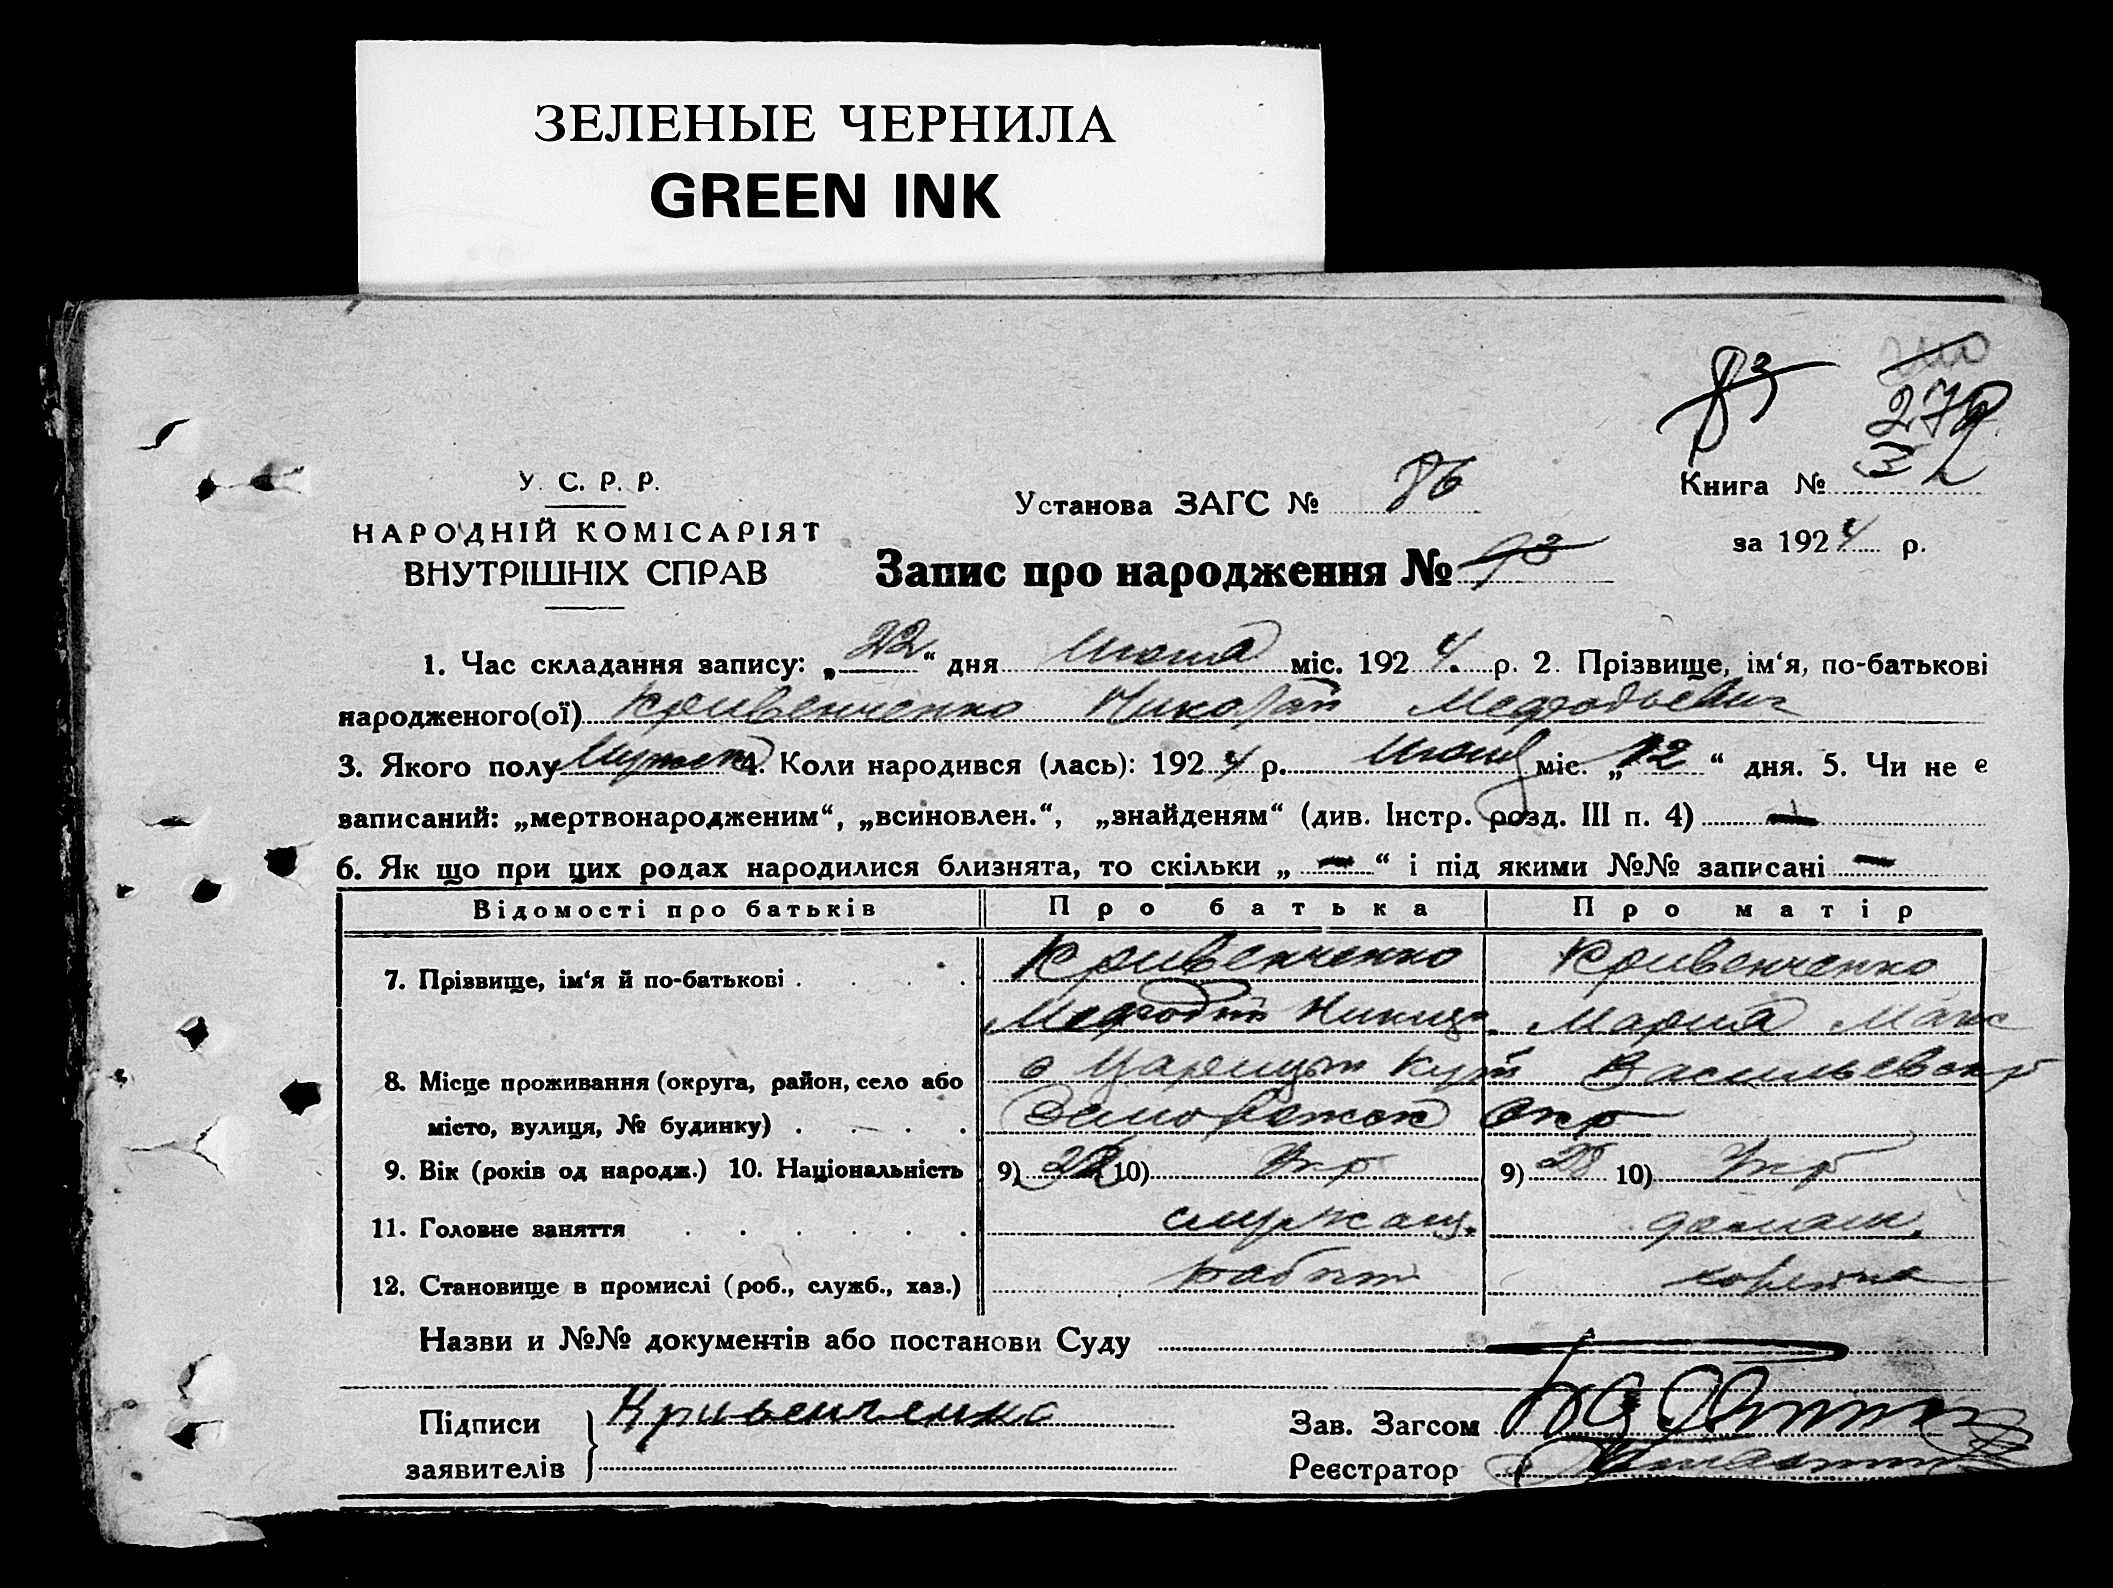 ЗЕЛЕНЫЕ ЧЕРНИЛА
GREEN INK
83
279
У. С. Р. Р.
НАРОДНІЙ КОМІСАРІЯТ
ВНУТРІШНІХ СПРАВ
Установа ЗАГС № 86
Книга №
за 1924 р.
Запис про народження № 93
1. Час складання запису: „22“ дня Июня міс. 1924. р. 2. Прізвище, ім‘я, по-батькові
народженого(ої) Кривенченко Николай Мефодьевич
3. Якого полу Мужск 4. Коли народився (лась): 1924 р. Июня міс. „12“ дня. 5. Чи не є
записаний: „мертвонародженим“, „всиновлен.“, „знайденям“ (див. Інстр. розд. III п. 4) —
6. Як що при цих родах народилися близнята, то скільки „—“ і під якими №№ записані —
Відомості про батьків Про батька Про матір
7. Прізвище, ім‘я й по-батькові . . . . Кривенченко Кривенченко
Мефодий Никиф. Мария Макс
8. Місце проживання (округа, район, село або с Царицын Кут Васильевск р
місто, вулиця, № будинку) . . . . Окр
9. Вік (років од народж.) 10. Національність 9) 10) Укр 9) 28 10) Укр
11. Головне заняття . . . . . . служащ. домаш.
12. Становище в промислі (роб., служб., хаз.) работ
Назви и №№ документів або постанови Суду —
Підписи Кривенченко Зав. Загсом
заявителів Реєстратор